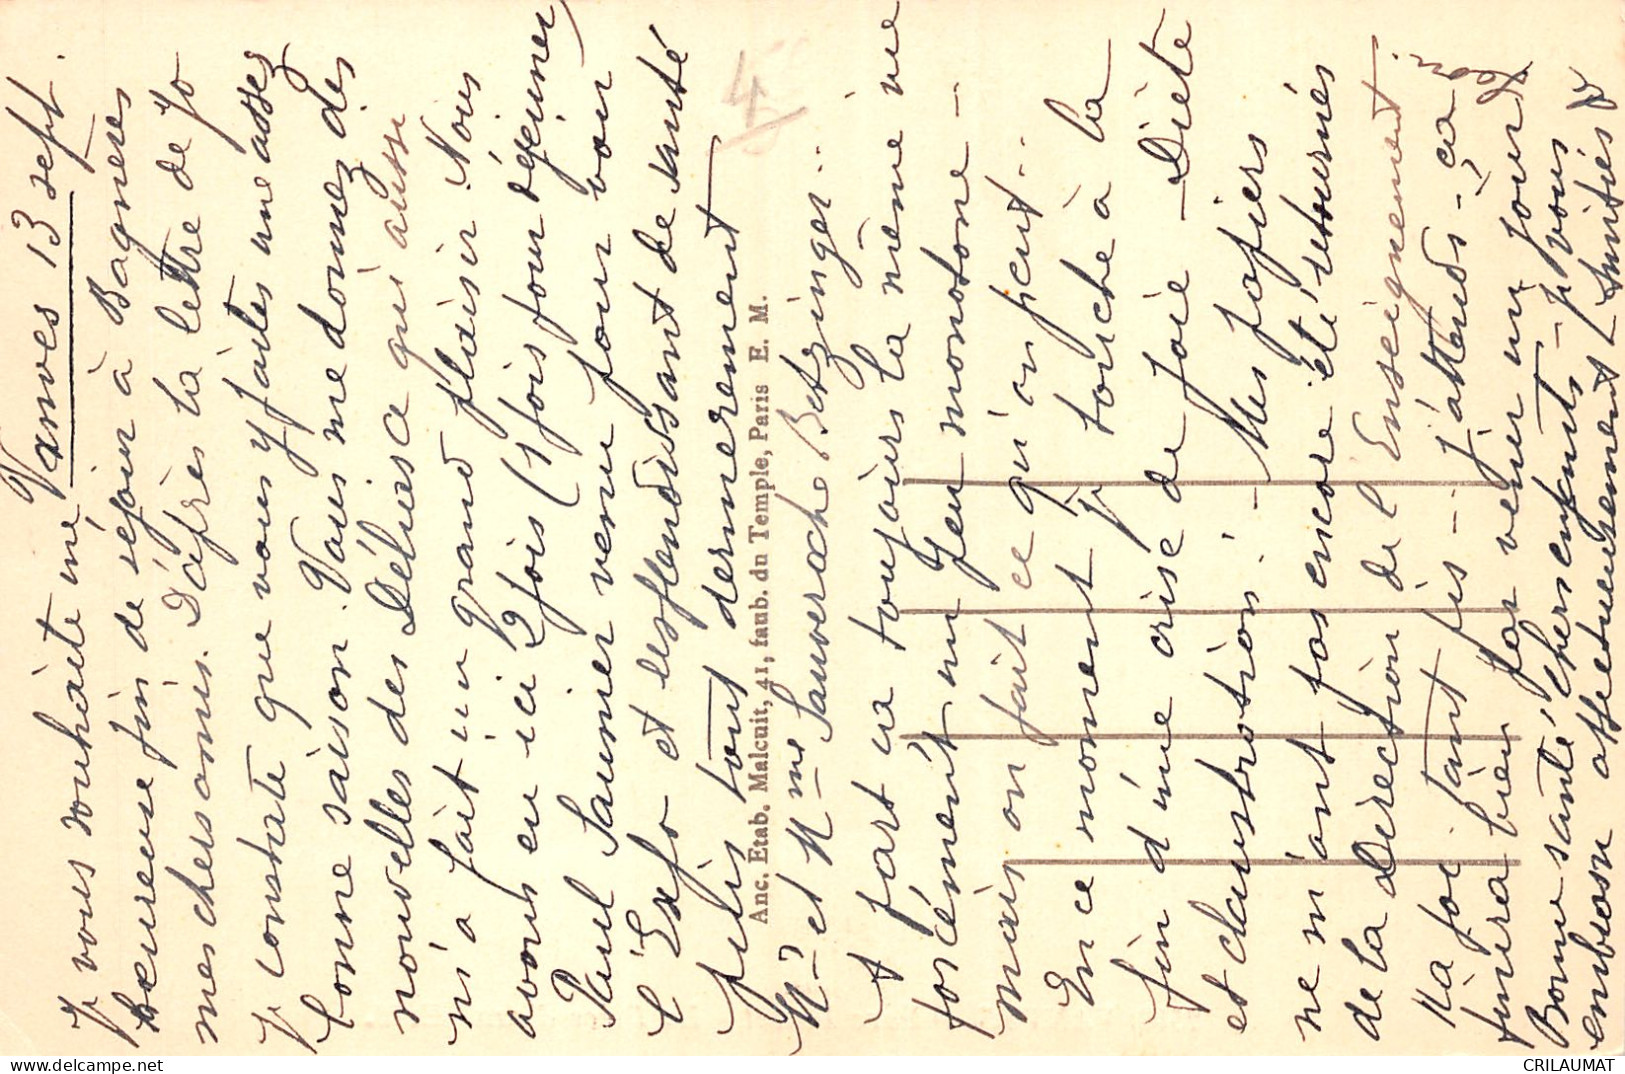 Vanves 13 sept.
Je vous souhaite une
heureuse fin de séjour à Bagneres
mes chers amis. D'après la lettre de Jo
Je constate que vous y faites une assez
bonne saison. Vous me donnez des
nouvelles des Deliusse qui aussi
m'a fait un grand plaisir. Nous
avons eu ici 2 fois (1 fois pour déjeuner)
Paul Saunier venu pour voir
l'Expo et resplendissant de santé
puis tout dernierement
Mr et Mme Sauveroche Betzinger..
A part ça toujours la même vie
forcément un peu monotone -
mais on fait ce qu'on peut...
En ce moment je touche à la
fin d'une crise de foie - Diète
et claustration! - Mes papiers
ne m'ont pas encore été retournés
de la Direction de l'Enseignement.
Ma foi tant pis - j'attends - ça
finira bien par venir un jour
Bonne santé, chers enfants - je vous
embrasse affectueusement (Amitiés à
Anc. Etab. Malcuit, 41, faub. du Temple, Paris E. M.
4
CRILAUMAT